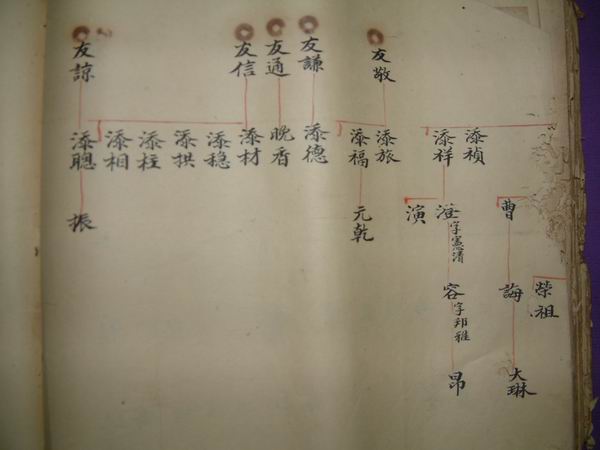 友敬
友謙
友通
友信
友諒
添禎
添祥
添旅
添福
添德
晚香
添材
添稳
添拱
添柱
添相
添聰
曹
澄字憲清
演
元乾
振
榮祖
誨
容字邦雅
大琳
昂